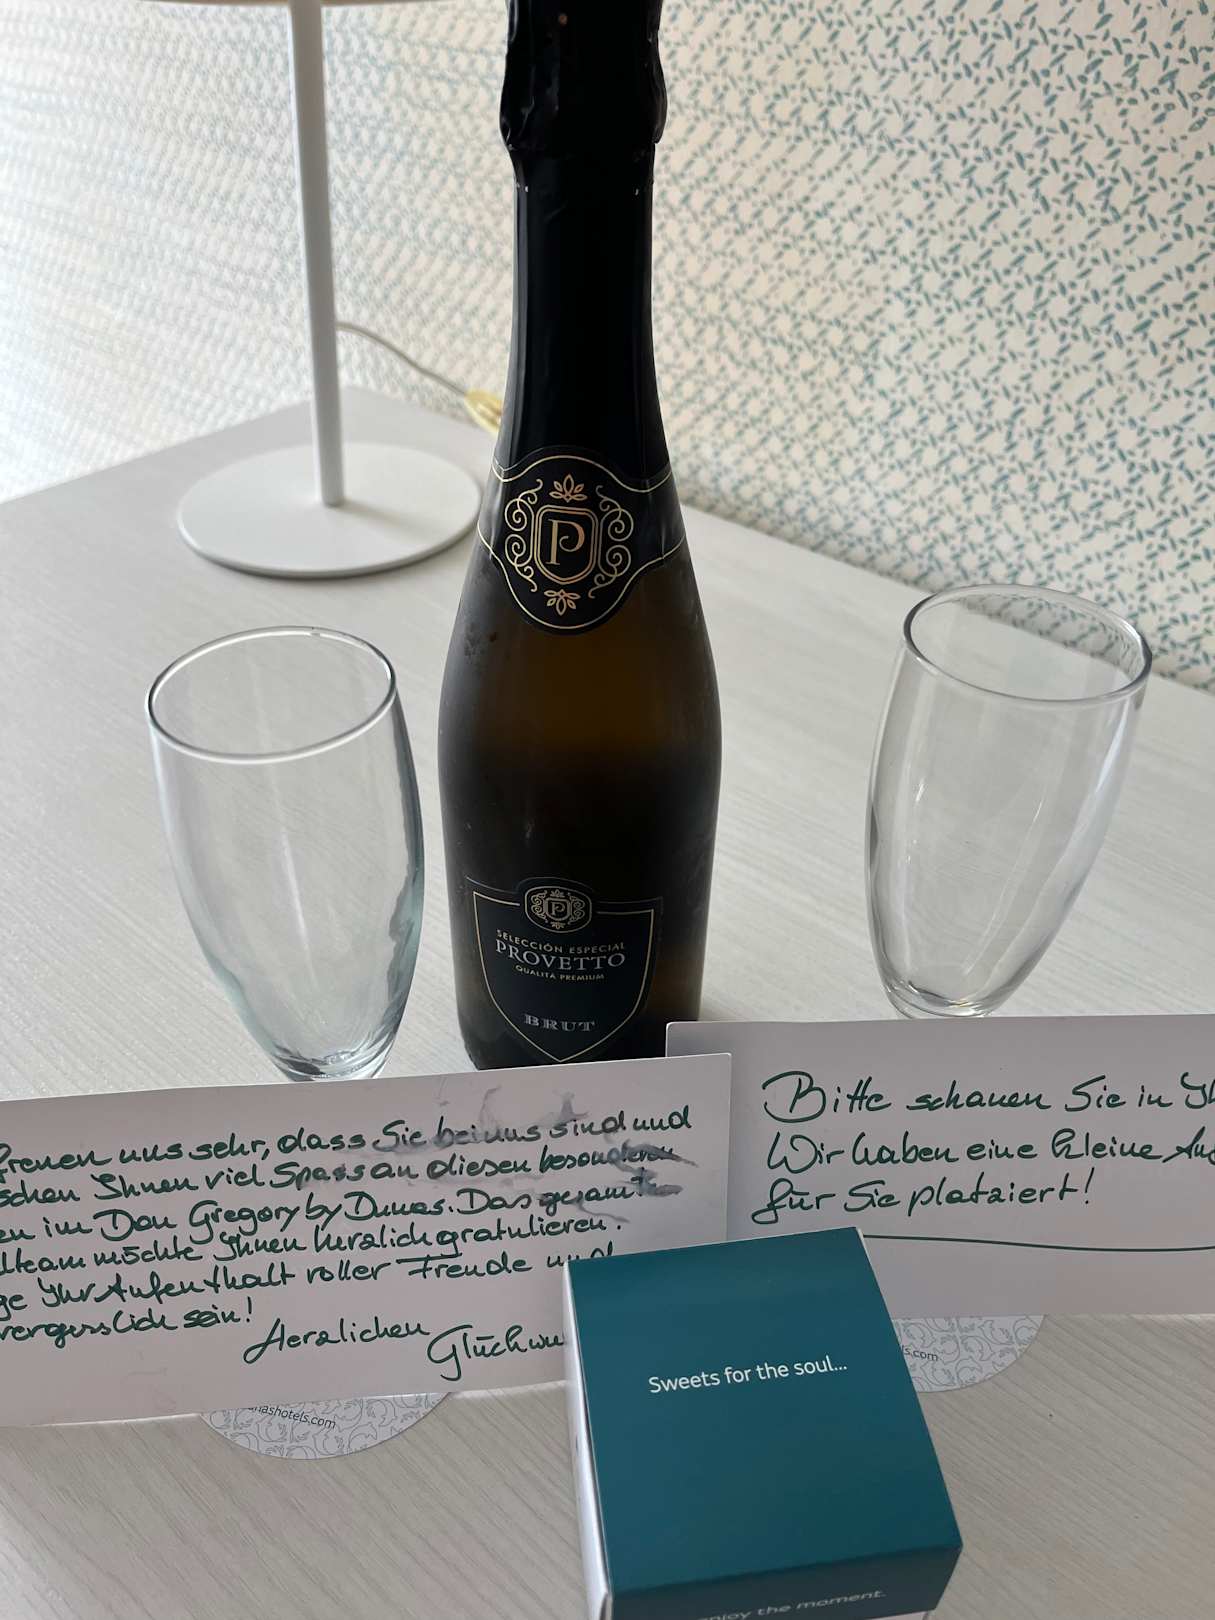 P
P
SELECCIÓN ESPECIAL
PROVETTO
QUALITÀ PREMIUM
BRUT
freuen uns sehr, dass Sie bei uns sind und
schen Ihnen viel Spass an diesen besonderen
en im Don Gregory by Dunas. Das gesamte
lteam möchte Ihnen herzlich gratulieren.
ge Ihr Aufenthalt voller Freude und
vergesslich sein!
Herzlichen Glückwu
Bitte schauen Sie in Ih
Wir haben eine kleine Auf
für Sie platziert!
nashotels.com
ls.com
Sweets for the soul...
enjoy the moment.